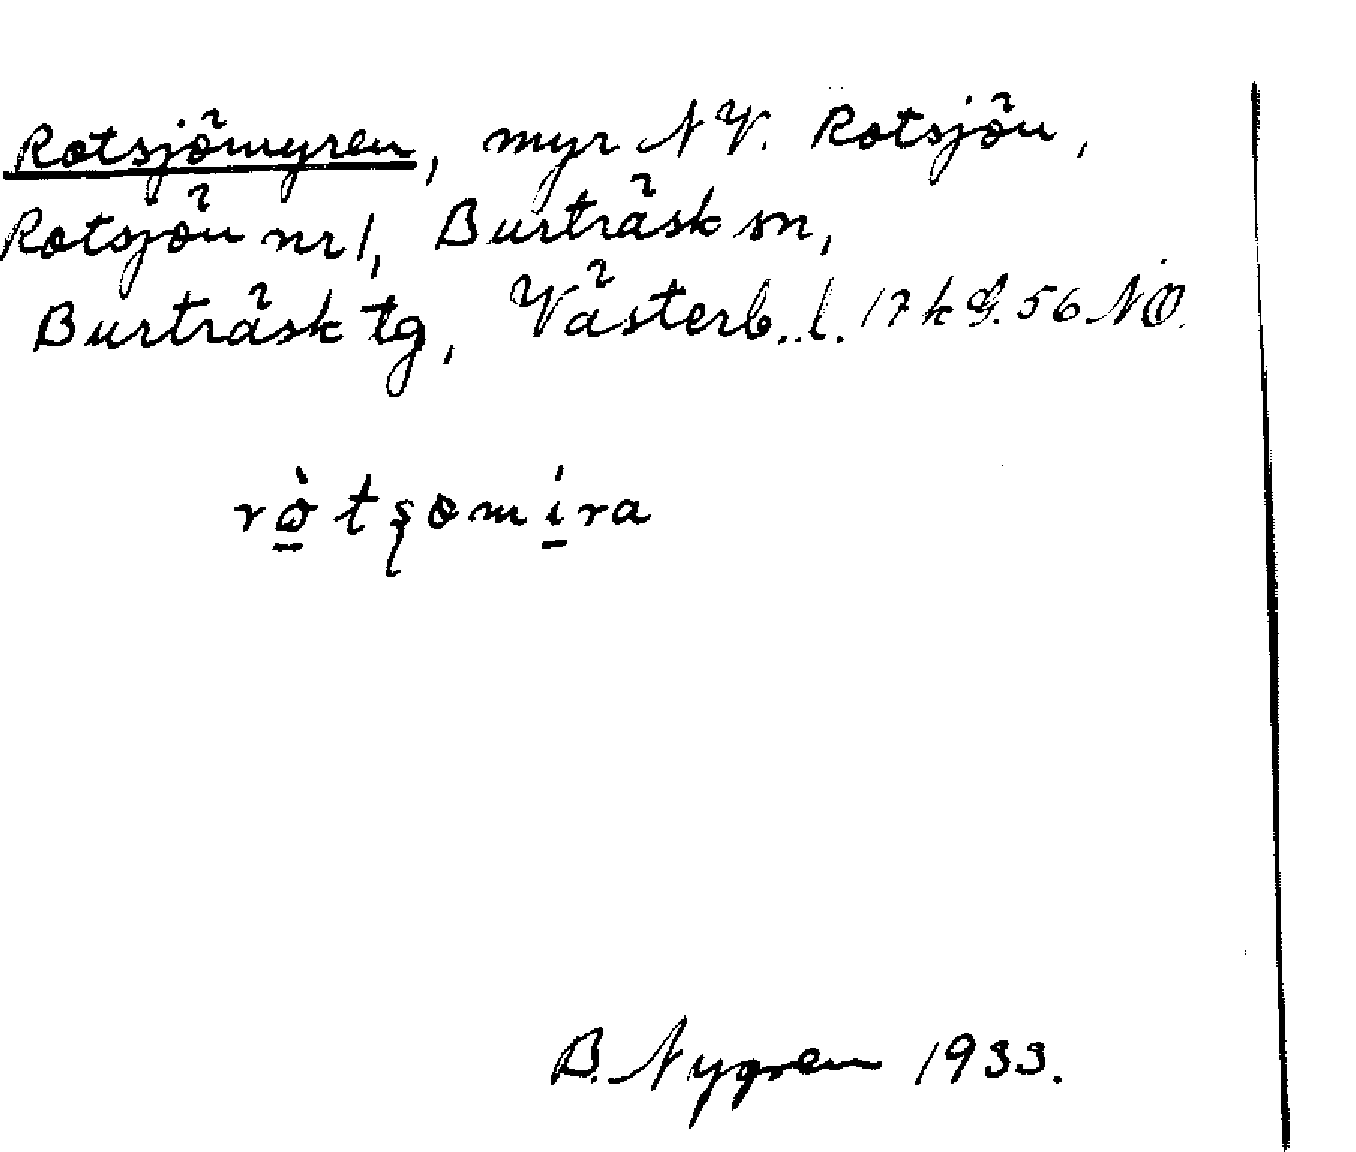 Rotsjömyren, myr NV. Rotsjön,
Rotsjön nr 1, Burträsk sn,
Burträsk tg, Västerb. l. 17 k S. 56 NO.
B. Nygren 1933.